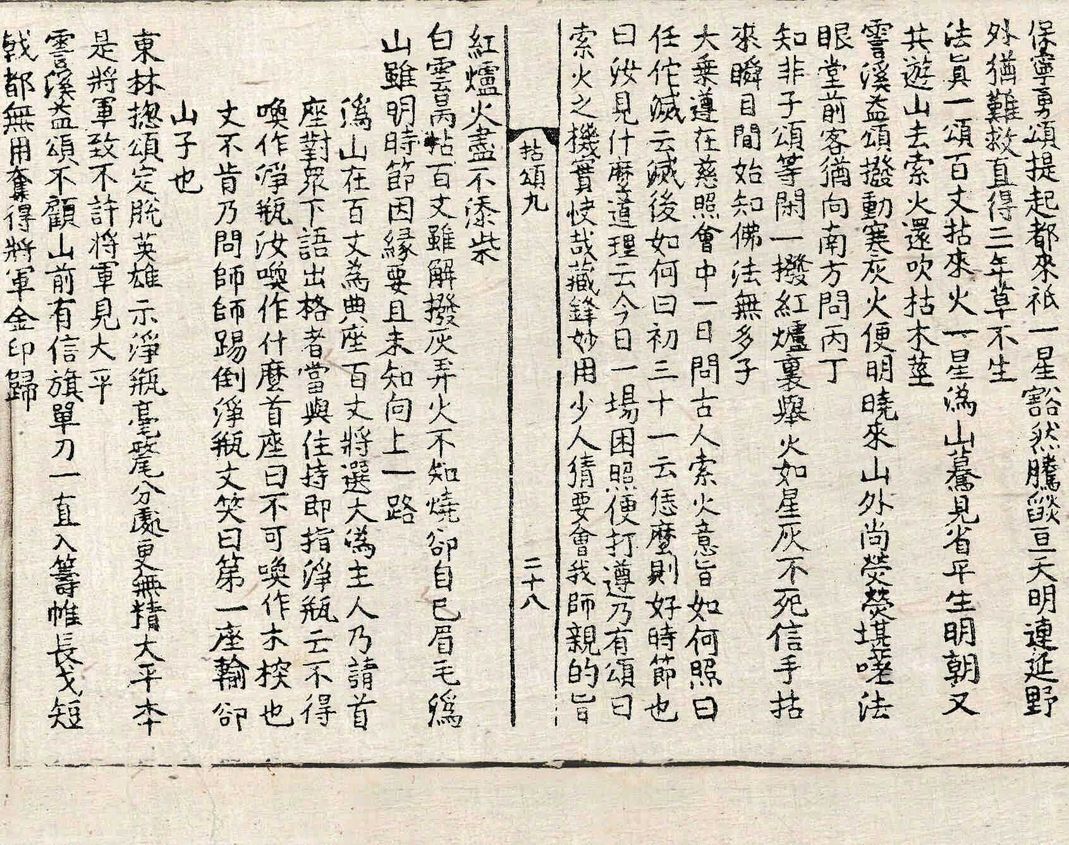 保寧勇頌提起都來祇一星豁然騰燄亘天明連延野
外猶難救直得三年草不生
法眞一頌百丈拈來火一星潙山驀見省平生明朝又
共遊山去索火還吹枯木莖
雪溪益頌撥動寒灰火便明曉來山外尚熒熒堪嗟法
眼堂前客猶向南方問丙丁
知非子頌等閑一撥紅爐裏舉火如星灰不死信手拈
來瞬目間始知佛法無多子
大乗遵在慈照會中一日問古人索火意旨如何照曰
任佗滅云滅後如何曰初三十一云恁麼則好時節也
曰汝見什麼道理云今日一場困照便打遵乃有頌曰
索火之機實快哉藏鋒妙用少人猜要會我師親的旨
拈頌九 二十八
紅爐火盡不添柴
白雲昺拈百丈雖解撥灰弄火不知燒卻自己眉毛潙
山雖明時節因緣要且未知向上一路
潙山在百丈為典座百丈將選大潙主人乃請首
座對眾下語出格者當與住持即指淨瓶云不得
喚作淨瓶汝喚作什麼首座曰不可喚作木𣔻也
丈不肯乃問師師踢倒淨瓶丈笑曰第一座輸卻
山子也
東林摠頌定脫英雄示淨瓶毫氂分處更無精大平本
是將軍致不許將軍見大平
雲溪益頌不顧山前有信旗單刀一直入籌帷長戈短
戟都無用奪得將軍金印歸